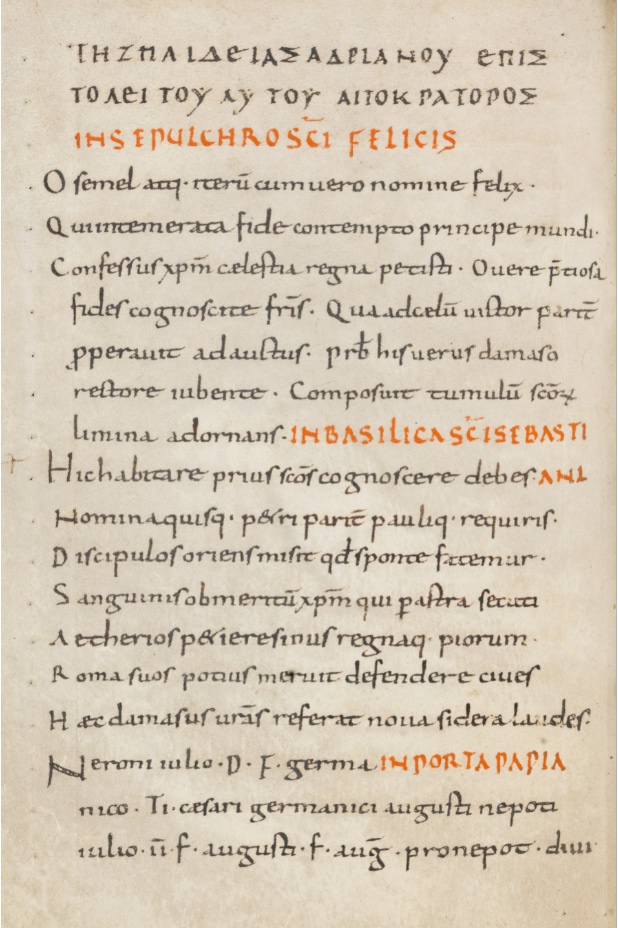 ΤΗΣ ΠΑΙΔΕΙΑΣ ΑΔΡΙΑΝΟΥ ΕΠΙΣ
ΤΟΛΕΙ ΤΟΥ ΑΥΤΟΥ ΑΠΟΚΡΑΤΟΡΟΣ
IN SEPULCHRO SC̅I FELICIS
O semel atq· iterū cum uero nomine felix ·
Qui intemerata fide contempto principe mundi·
Confessus xpm̅ cælestia regna petisti · O uere p̅tiosa
fides cognoscite fr̅s · Qua ad celū uictor parit̅
ꝓperauit ad auctus · prb̅ his uerus damaso
rectore iubente · Composuit tumulū sco̅ꝝ
limina adornans · IN BASILICA SC̅I SEBASTI
Hic habitare prius sc̅os cognoscere debes · ANI
Nomina quisq · p&ri parit̅ pauliq · requiris ·
Discipulos oriens misit qd̅ sponte fatemur ·
Sanguinis ob meritū xpm̅ qui ꝑ astra secuti
Aetherios p&iere sinus regnaq · piorum ·
Roma suos potius meruit defendere ciues
Hæc damasus ur̅as referat noua sidera laudes ·
Neroni iulio · D · F · germa IN PORTA PAPIA
nico · Ti · cæsari germanici augusti nepoti
iulio · ii̅ · f · augusti · f · aug̅ · pronepot · diui